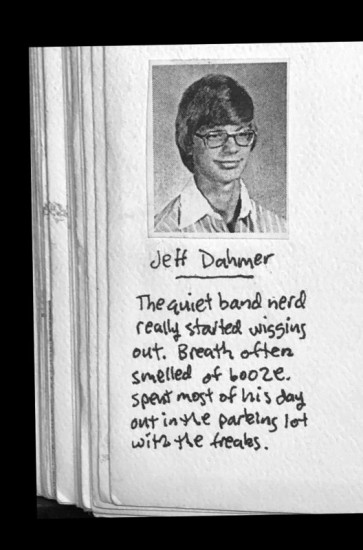 Jeff Dahmer
The quiet band nerd
really started wigging
out. Breath often
smelled of booze.
spent most of his day
out in the parking lot
with the freaks.